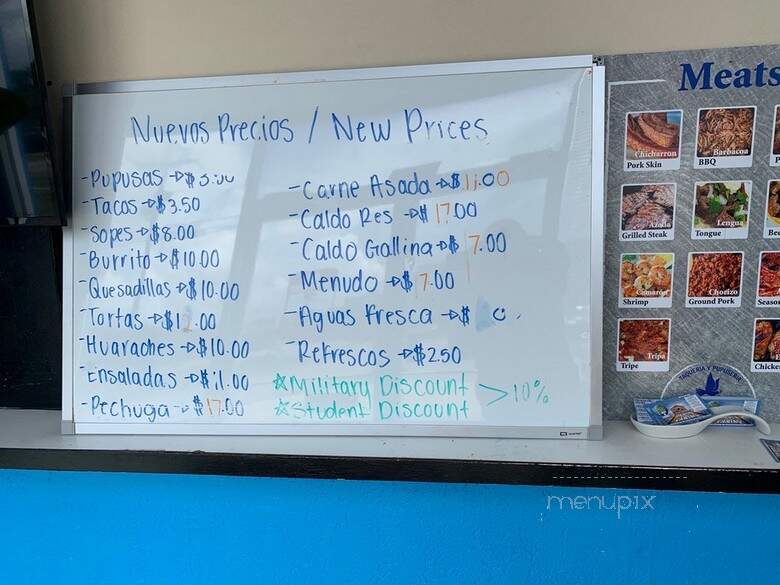 Nuevos Precios / New Prices
- Pupusas → $3.00
- Tacos → $3.50
- Sopes → $8.00
- Burrito → $10.00
- Quesadillas → $10.00
- Tortas → $1 .00
- Huaraches → $10.00
- Ensaladas → $11.00
- Pechuga → $17.00
- Carne Asada → $ .00
- Caldo Res → $17.00
- Caldo Gallina → $ 7.00
- Menudo → $ 7.00
- Aguas Fresca → $
- Refrescos → $2.50
☆ Military Discount > 10%
☆ Student Discount
Meats
Chicharron
Pork Skin
Barbacoa
BBQ
Asada
Grilled Steak
Lengua
Tongue
Camaron
Shrimp
Chorizo
Ground Pork
Tripa
Tripe
TAQUERIA Y PUPUSERIA
menupix